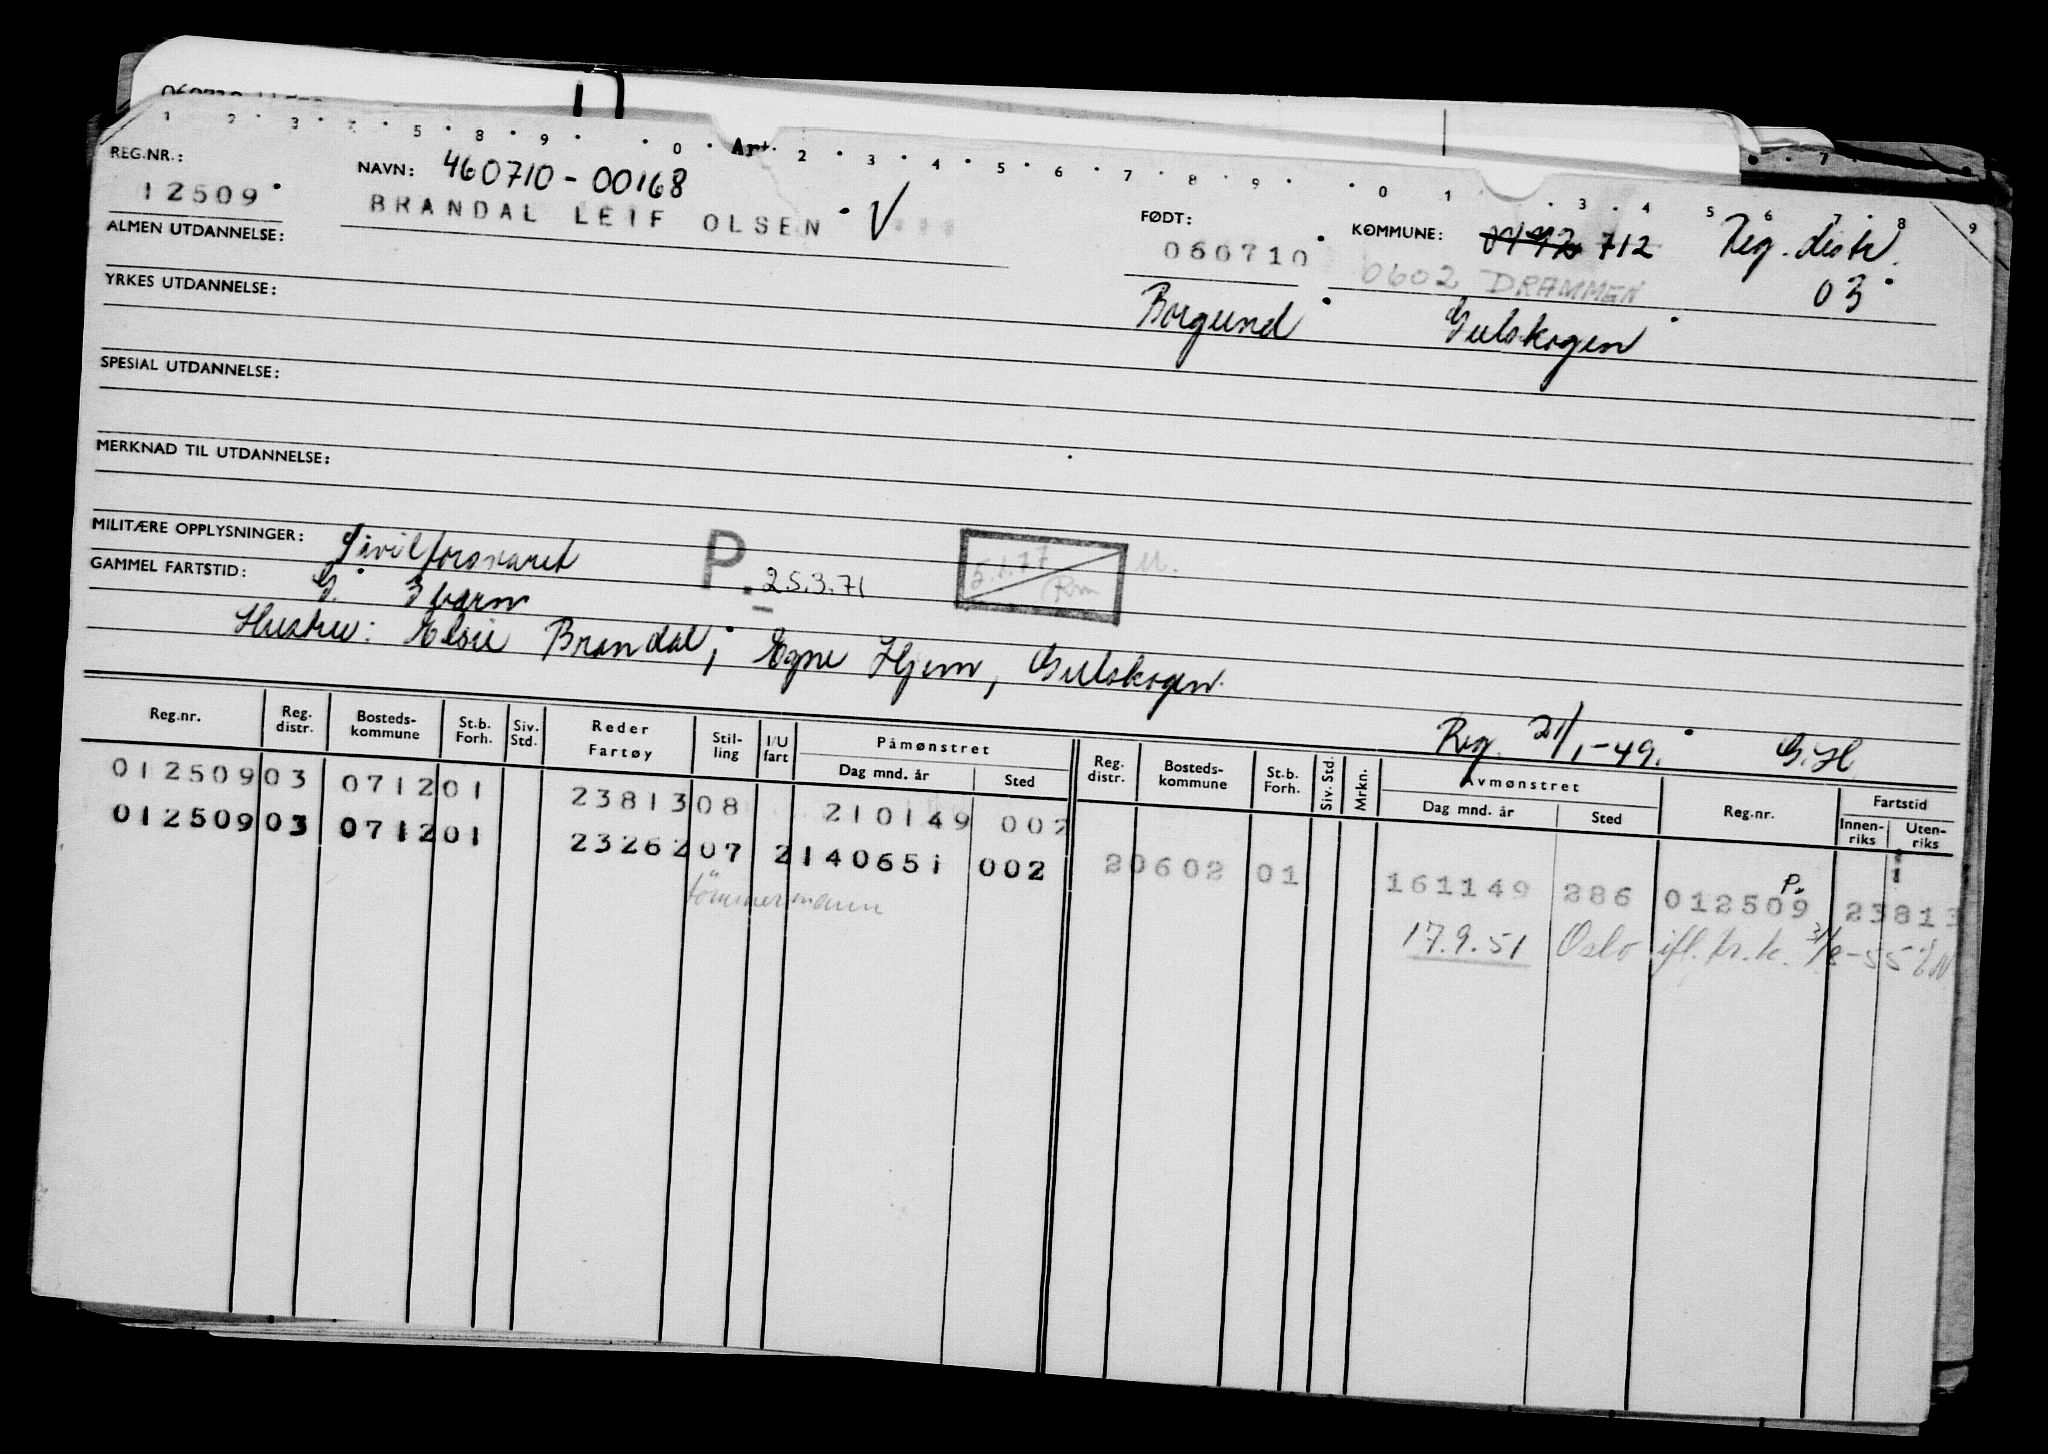 1 2 3 4 5 8 9 0 Art. 2 3 4 5 6 7 8 9 0 1 3 4 5 6 7 8 9
REG.NR.: NAVN: 460710-00168
12509 BRANDAL LEIF OLSEN V FØDT: KOMMUNE: 712 Reg. distr.
060710 0602 DRAMMEN 03
ALMEN UTDANNELSE:
Borgund Gulskogen
YRKES UTDANNELSE:
SPESIAL UTDANNELSE:
MERKNAD TIL UTDANNELSE:
MILITÆRE OPPLYSNINGER: Sivilforsvaret P. 25.3.71 5.1.77 Rm M.
GAMMEL FARTSTID: G. 3 barn
Hustru: Elsie Brandal, Egne Hjem, Gulskogen.
Reg. 21/1-49. G.H
Reg.nr. Reg. distr. Bosteds- kommune St.b. Forh. Siv. Std. Reder Fartøy Stil- ling I/U fart Påmønstret Dag mnd. år Sted Reg. distr. Bosteds- kommune St.b. Forh. Siv. Std. Mrkn. Avmønstret Dag mnd. år Sted Reg.nr. Fartstid Innen- riks Uten- riks
012509 03 0712 01 23813 08 210149 002 2 0602 01 161149 286 012509 P. 23813
012509 03 0712 01 23262 07 2 140651 002 17.9.51 Oslo ifl. tr.k. 31/8-55
tömmermann